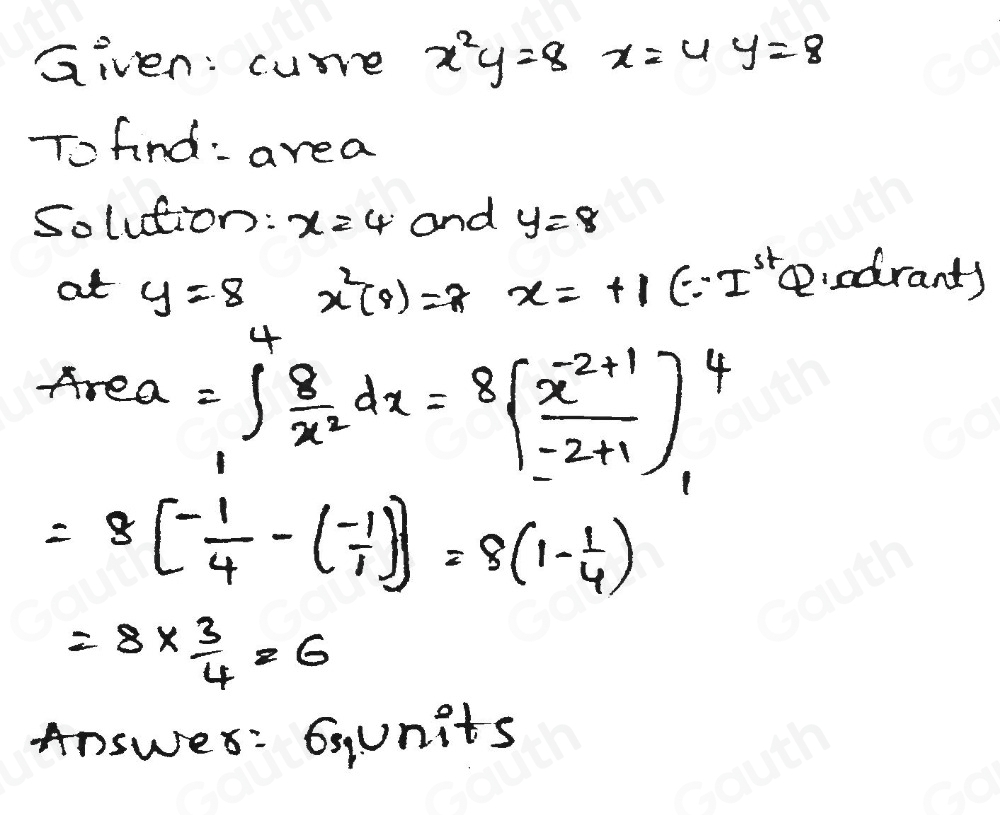 Given: curve x²y=8 x=4 y=8
To find:- area
Solution: x=4 and y=8
at y=8 x²(8)=8 x=+1 (∵ Iˢᵗ Quadrants)
Area = ∫₁⁴ 8/x² dx = 8[x^(-2+1)/(-2+1)]₁⁴
= 8[-1/4 - (-1/1)] = 8(1-1/4)
= 8×3/4 = 6
Answer: 6 sq units